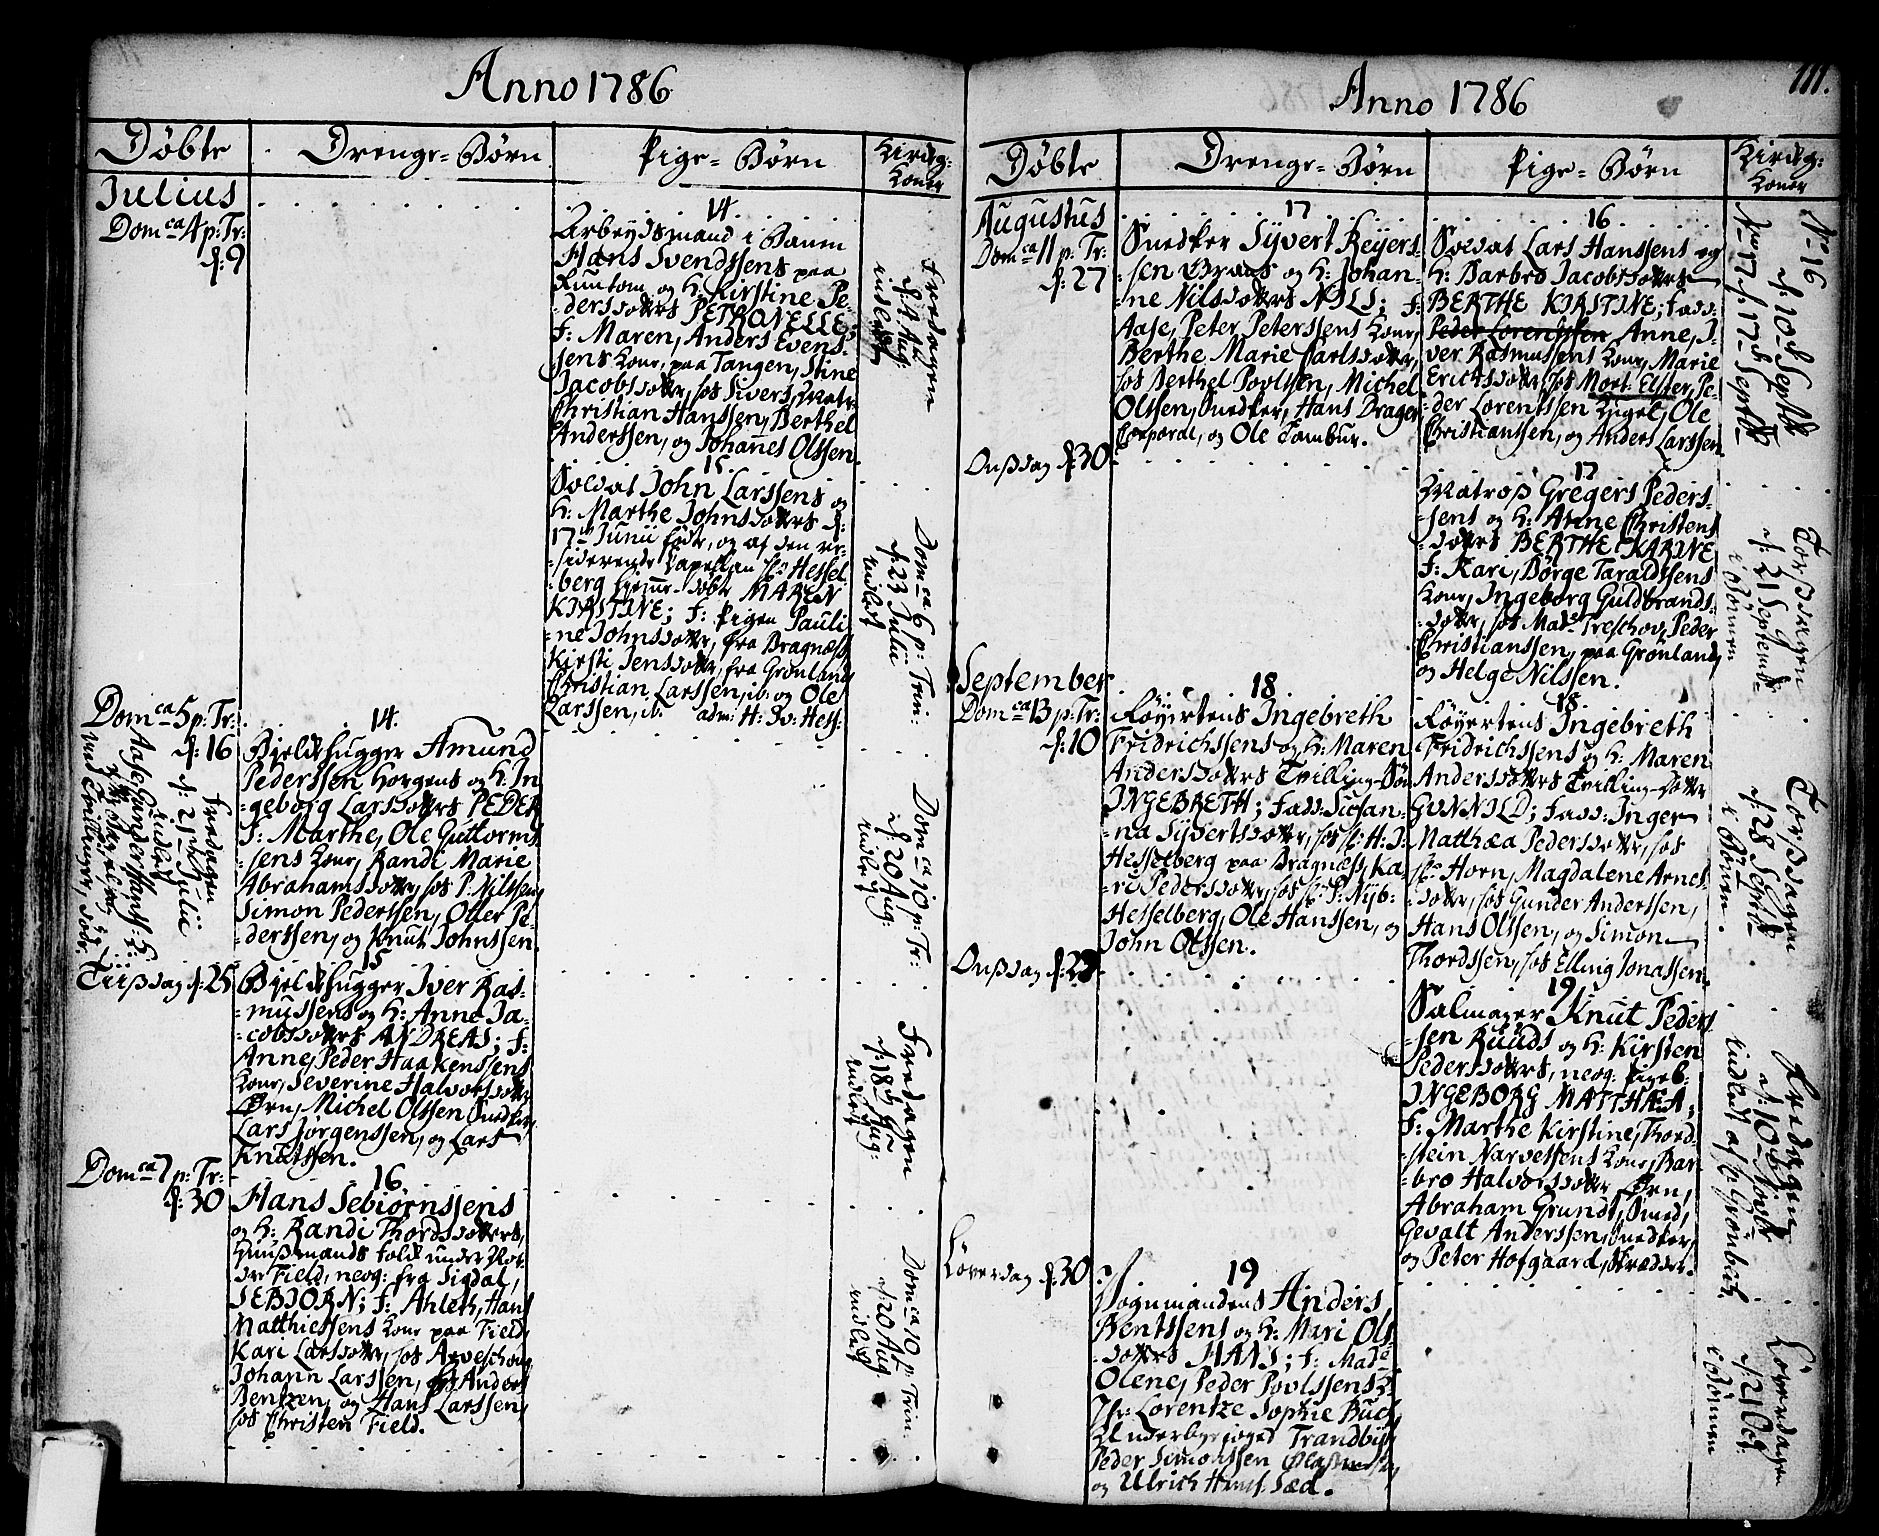 Anno 1786
Døbte
Drenge-Børn
Pige-Børn
Kirkeg:
Koner
Julius
Dom ca 4 p: Tr:
d: 9
14.
Arbeydsmand i Byen
Hans Svendssens paa
og H: Kirstine Pe-
-dersdotters PETRONELLE;
F: Maren, Anders Evens-
sens Kone, paa Tangen, Stine
Jacobsdotter, hos Sivers, Matr:
Christian Hanssen, Berthel
Anderssen, og Johannes Olssen
Fredagen
d: 4 Aug:
indledt
15.
Soldat John Larssens og
H: Marthe Johnsdotters d:
17 Junii født, og af den re-
-siderende Capellan Hr: Hessel
berg hjemme-døbt MAREN
KIRSTINE; F: Pigen Pauli-
-ne Johnsdotter, fra Bragnæss
Kirsti Jensdotter, fra Grønland
Christian Larssen, ib: og Ole
Larssen, ib. adm: H: Hr: Hess:
Dom ca 6 p: Trin:
d: 23 Julii
indledt
Dom ca 5 p: Tr:
d: 16
14.
Bjelkehugger Amund
Pederssen Horgens og H: In
-geborg Larsdotters PEDER
F: Marthe, Ole Guttorms
-sens Kone, Randi Marie
Abrahamsdotter, hos P: Nilssen,
Simon Pederssen, Oller Pe-
-derssen, og Knut Johnssen.
Dom ca 10 p: Tr:
d: 20 Aug:
indledt
Fredagen
d: 21 Julii
indledt
Aase Gunderssens H:
med Tvillinger, døde
Tiisdag d: 25
15
Bjelkehugger Iver Ras-
-mussens og H: Anne Ja-
-cobsdotters ANDREAS; F:
Anne, Peder Haakenssens
Kone, Severine Halvorsdotter
Ørn, Michel Olssen Snedker,
Lars Jørgenssen, og Lars
Knutssen.
Fredagen
d: 18 Aug:
indledt
Dom ca 7 p: Tr:
d: 30
16.
Hans Sebiørnssens
og H: Randi Thordsdotters,
Huusmands Folk under
Field, neog: fra Sigdal,
SEBJORN; F: Ahleth, Hans
Matthiessens Kone paa Field,
Kari Larsdotter, hos Arveschoug,
Johann Larssen, Anders
Bentzen, og Hans Larssen,
hos Christen Field.
Dom ca 10 p: Trin
d: 20 Aug:
indledt
Anno 1786
111.
Døbte
Drenge-Børn
Pige-Børn
Kirkeg:
Koner
Augustus
Dom ca 11 p: Tr:
d: 27
17
Snedker Syvert Reyers-
-sen Braas og H: Johan-
-ne Nilsdotters NILS; F:
Aase, Peter Peterssens Kone,
Berthe Marie Carlsdotter,
hos Berthel Povlssen, Michel
Olssen, Snedker, Hans Drager
Corporal, og Ole Tambur.
16
Soldat Lars Hanssens og
H: Barbro Jacobsdotters
BERTHE KIRSTINE; Fadd:
Peder Lorentssen Anne, I-
ver Rasmussens Kone, Marie
Ericksdotter, hos Mort. Elster, Pe-
-der Lorentssen Kugel, Ole
Christianssen, og Anders Larssen
No 16
d: 10 Septbr
No 17 d: 17 Septbr
Onsdag d: 30
17
Matros Gregers Peders-
-sens og H: Anne Christens
-dotters BERTHE KARINE
F: Kari, Børge Taraldssens
Kone, Ingeborg Guldbrands-
-dotter, hos Mad: Treschov, Peder
Christianssen, paa Grønland,
og Helge Nilssen.
Torsdagen
d: 21 Septemb:
i Bønnen
September
Dom ca 13 p: Tr:
d: 10
18
Røyertens Ingebreth
Fridrichssens og H: Maren
Andersdotters Tvilling-Søn
INGEBRETH; Fadd: Susan-
-na Syvertsdotter, hos Hr: H: J:
Hesselberg paa Bragnæss, Ka-
-ri Pedersdotter, hos Hr: P: Nyb-
Hesselberg, Ole Hanssen, og
John Olssen.
18.
Røyertens Ingebreth
Fridrichssens og H: Maren
Andersdotters Tvilling-Dotter
GUNNILD; Fadd: Inger
Matthæa Pedersdotter, hos
Hr: Horn, Magdalene Arnes
-dotter, hos Gunder Anderssen,
Hans Olssen, og Simon
Thordssen, hos Elling Jonassen.
Torsdagen
d: 28 Septbr
i Bønnen.
Onsdag d: 27
19
Salmager Knut Peders
-sen Ruuds og H: Kirsten
Pedersdotters, neog: Pigeb:
INGEBORG MATTHÆA;
F: Marthe Kirstine, Thord-
-stein Narvessens Kone, Bar-
-bro Halvorsdotter Ørn,
Abraham Grundt, Smed,
Gevalt Anderssen, Snedker,
og Peter Hofgaard, Skrædder.
Fredagen
d: 10 Novbr
indledt af Hr: Grønbech
Løverdag d: 30
19
Vognmandens Anders
Bentssens og H: Mari Ols
-dotters HANS; F: Made
Olene, Peder Povlssens H:
Jfr: Lorentze Sophie Buch
Underbyefoged Trandbye,
Peder Simonssen
og Ulrich Hans: Sæd.
Løverdagen
d: 21 Oct:
i Bønnen